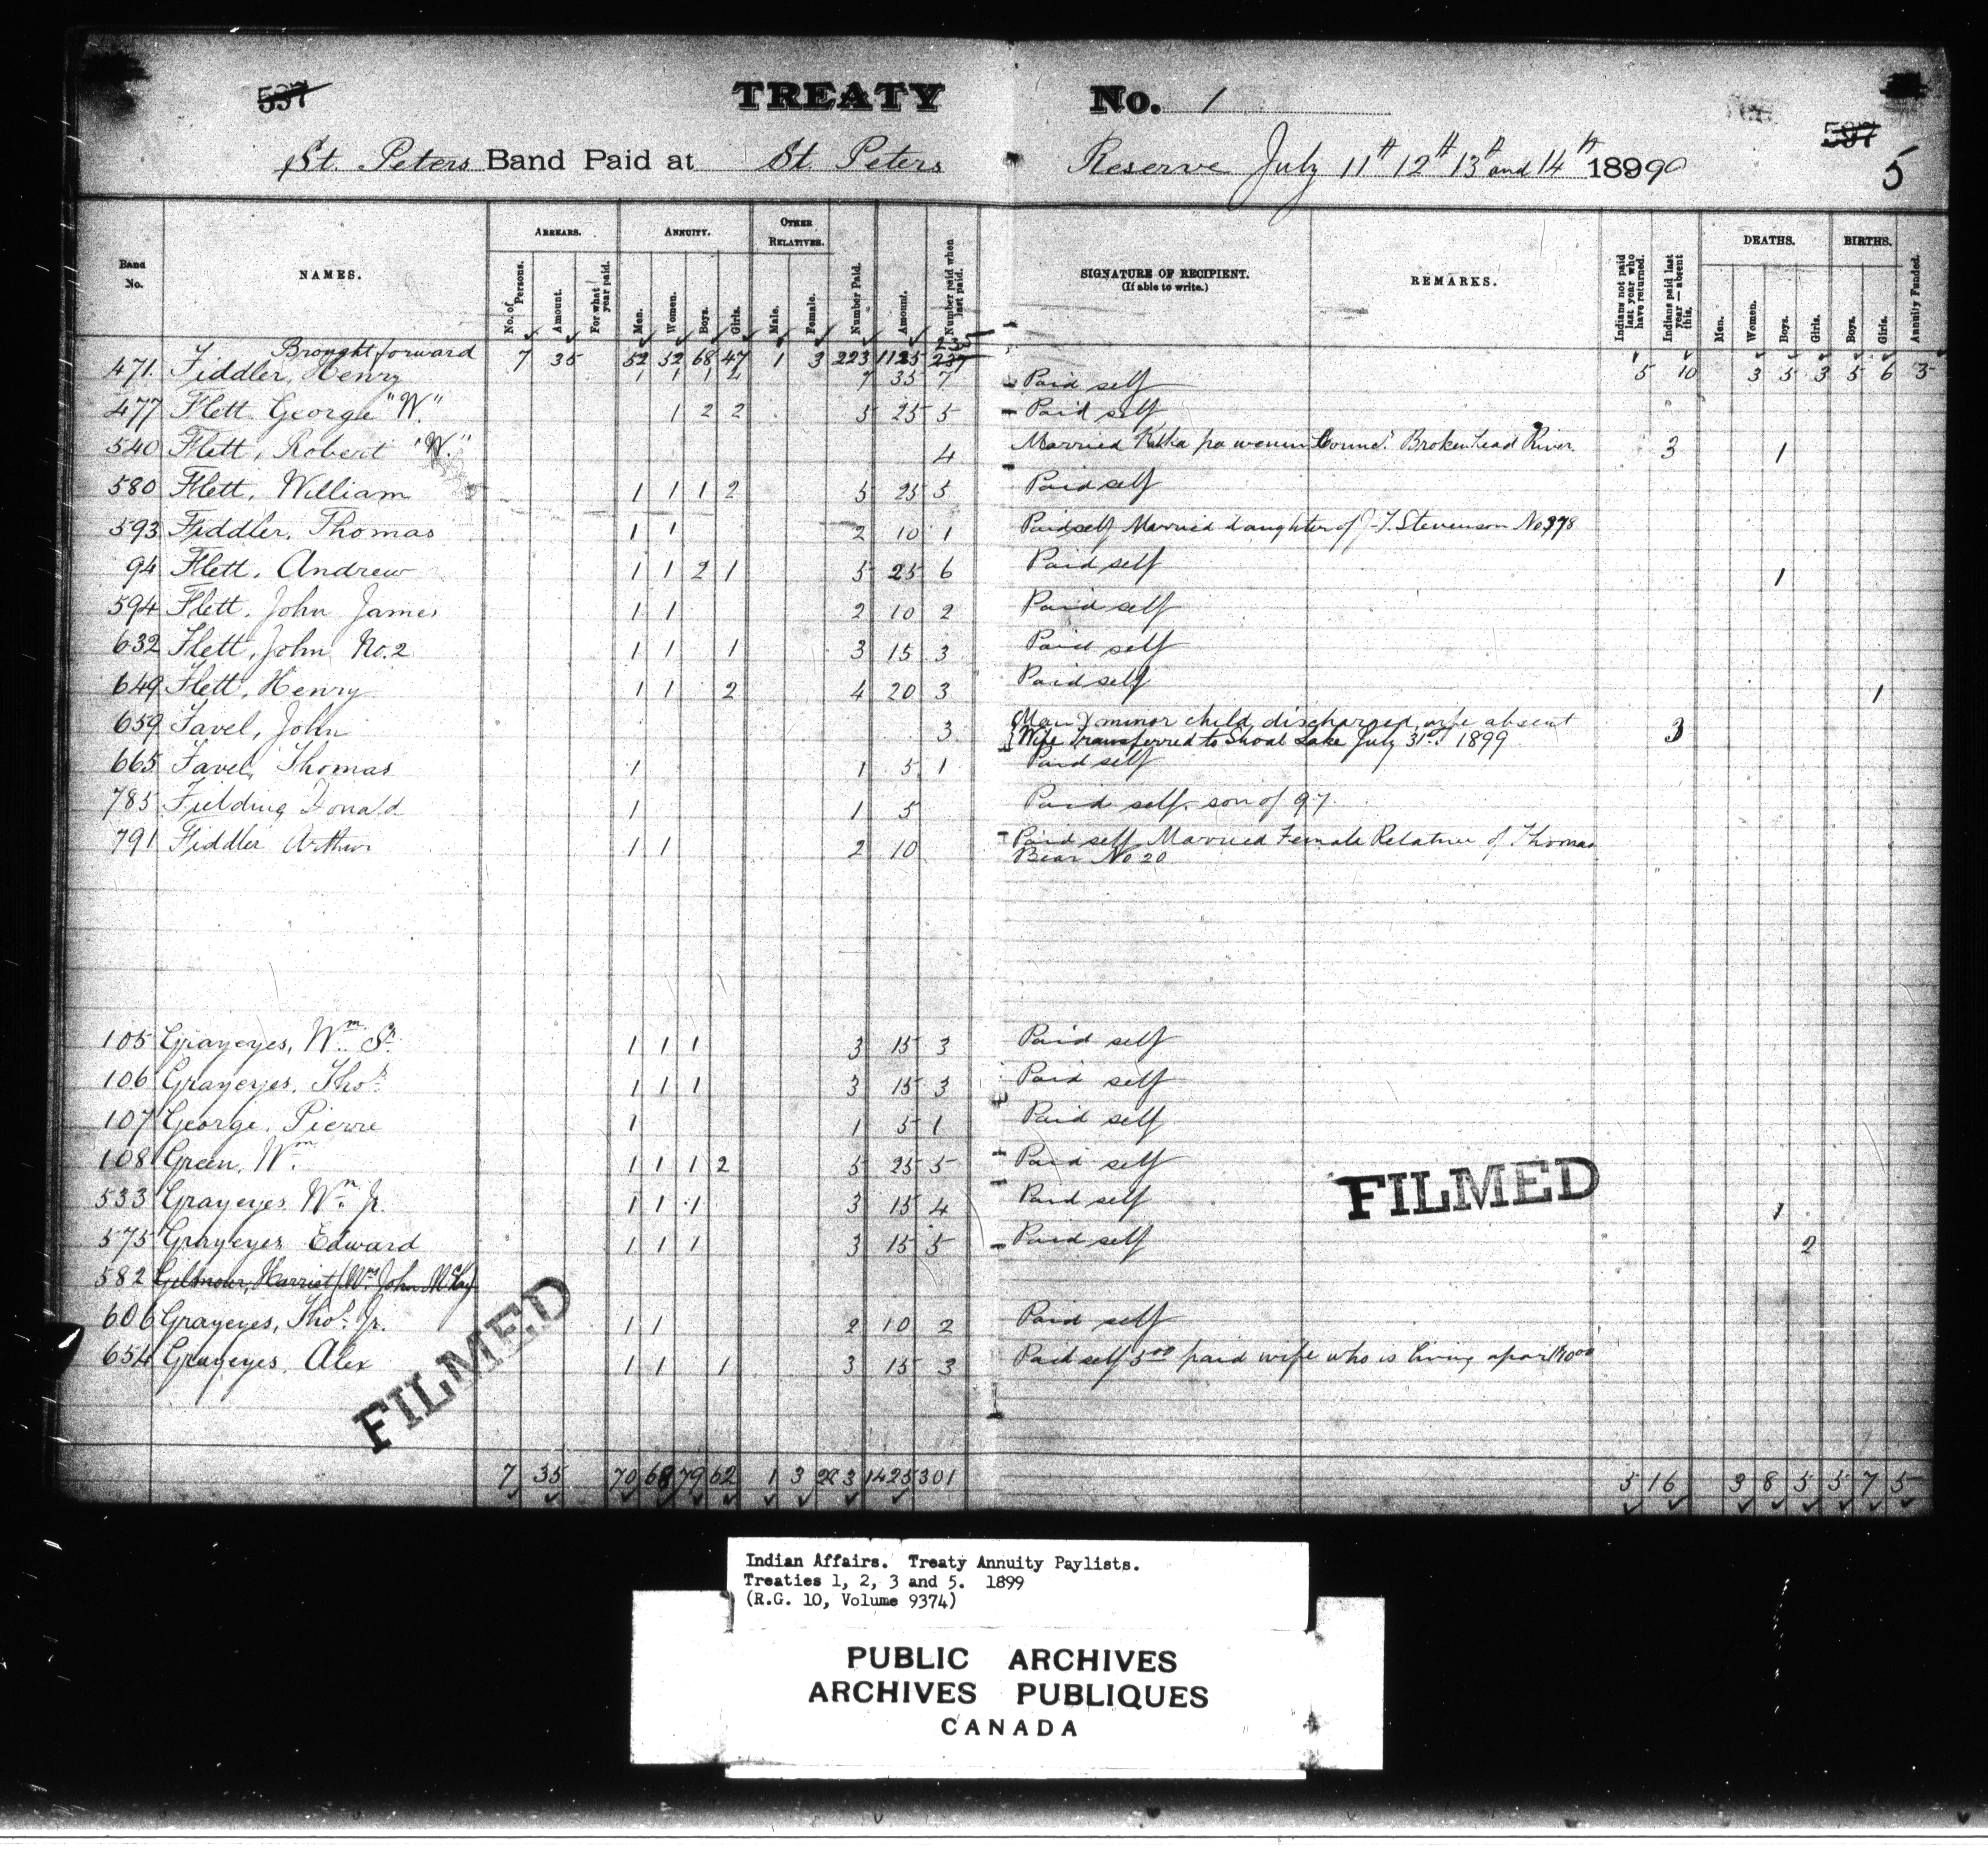 597 TREATY No. 1 597
St. Peters Band Paid at St. Peters Reserve July 11th 12th 13th and 14th 18999 5
Band No. NAMES. ARREARS. No. of Persons. Amount. For what year paid. ANNUITY. Men. Women. Boys. Girls. OTHER RELATIVES. Male. Female. Number Paid. Amount. Number paid when last paid. SIGNATURE OF RECIPIENT. (If able to write.) REMARKS. Indians not paid last year who have returned. Indians paid last year — absent this. DEATHS. Men. Women. Boys. Girls. BIRTHS. Boys. Girls. Annuity Funded.
Brought forward 7 35 52 52 68 47 1 3 223 1125 237 5 10 3 5 3 5 6 3
471 Fiddler, Henry 1 1 1 4 7 35 7 Paid self
477 Flett George "W." 1 2 2 5 25 5 Paid self
540 Flett, Robert "W." 4 Married Brokenhead River. 3 1
580 Flett, William 1 1 1 2 5 25 5 Paid self
593 Fiddler, Thomas 1 1 2 10 1 Paid self Married daughter of J. T. Stevenson No 378
94 Flett, Andrew 1 1 2 1 5 25 6 Paid self 1
594 Flett, John James 1 1 2 10 2 Paid self
632 Flett, John No. 2 1 1 1 3 15 3 Paid self
649 Flett, Henry 1 1 2 4 20 3 Paid self 1
659 Favel, John 3 Man & minor child discharged, wife absent 3
Wife Transferred to Shoal Lake July 31st 1899
665 Favel, Thomas 1 1 5 1 Paid self
785 Fielding Donald 1 1 5 Paid self. son of 97.
791 Fiddler Arthur 1 1 2 10 Paid self Married Female Relative of Thomas
Bear No 20
105 Grayeyes, Wm Sr. 1 1 1 3 15 3 Paid self
106 Grayeyes, Thos. 1 1 1 3 15 3 Paid self
107 George, Pierre 1 1 5 1 Paid self
108 Green, Wm 1 1 1 2 5 25 5 Paid self
533 Grayeyes, Wm Jr. 1 1 1 3 15 4 Paid self 1
575 Grayeyes Edward 1 1 1 3 15 5 Paid self 2
582 Gilmour, Harriet (Mrs John McKay)
606 Grayeyes, Thos. Jr. 1 1 2 10 2 Paid self
654 Grayeyes, Alex 1 1 1 3 15 3 Paid self 5.00 paid wife who is living apart 10.00
FILMED
FILMED
7 35 70 68 79 62 1 3 283 1425 301 5 16 3 8 5 5 7 5
Indian Affairs. Treaty Annuity Paylists.
Treaties 1, 2, 3 and 5. 1899
(R.G. 10, Volume 9374)
PUBLIC ARCHIVES
ARCHIVES PUBLIQUES
CANADA